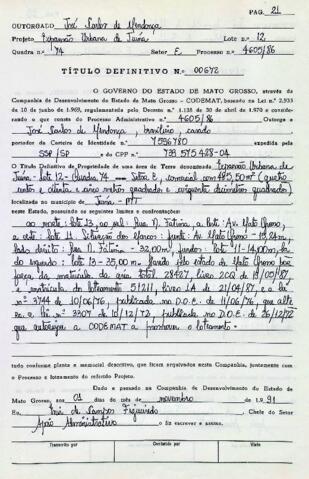 PAG. 21
OUTORGADO José Carlos de Mendonça
Projeto Expansão Urbana de Juína Lote n.º 12
Quadra n.º 74 Setor E Processo n.º 4605/86
TÍTULO DEFINITIVO N.º 00672
O GOVERNO DO ESTADO DE MATO GROSSO, através da
Companhia de Desenvolvimento do Estado de Mato Grosso - CODEMAT, baseado na Lei n.º 2.933
de 10 de junho de 1969, regulamentada pelo Decreto n.º 1.138 de 30 de abril de 1970 e considerando
o que consta do Processo Administrativo n.º 4605/86 Outorga a
José Carlos de Mendonça, brasileiro, casado
portador da Carteira de Identidade n.º 7556780 expedida pela
SSP/SP e do CPF n.º
O Título Definitivo de Propriedade de uma área de Terra denominada Expansão Urbana de
Juína - lote 12 - Quadra 74 - Setor E, comercial com 485,50 m² (quatro
centos e oitenta e cinco metros quadrados e cinquenta decímetros quadrados)
localizada no município de Juína - MT
neste Estado, possuindo os seguintes limites e confrontações:
ao norte: lote 13, ao sul: Rua N. Fátima, a leste: Av. Mato Grosso,
a oeste: lote 11
lado direito: Rua N. Fátima - 32,00m, fundos: lote 11 - 14,00m, lado
esquerdo: lote 13 - 35,00m
matrícula do loteamento 51211, livro
n.º 3744 de 10/06/76, publicada no D.O.E. de 11/06/76, que alte
ra a lei n.º 3307 de 18/12/72, publicada no D.O.E. de 26/12/72
que autoriza a CODEMAT a promover o loteamento.
tudo conforme planta e memorial descritivo, que ficam arquivados nesta Companhia, juntamente com
o Processo e loteamento do referido Projeto.
Dado e passado na Companhia de Desenvolvimento do Estado de
Mato Grosso, aos 01 dias do mês de novembro de 1991
Eu, de Campos Figueiredo Chefe do Setor
Apoio Administrativo o fiz escrever e assino.
Transcrito por Conferido por Visto